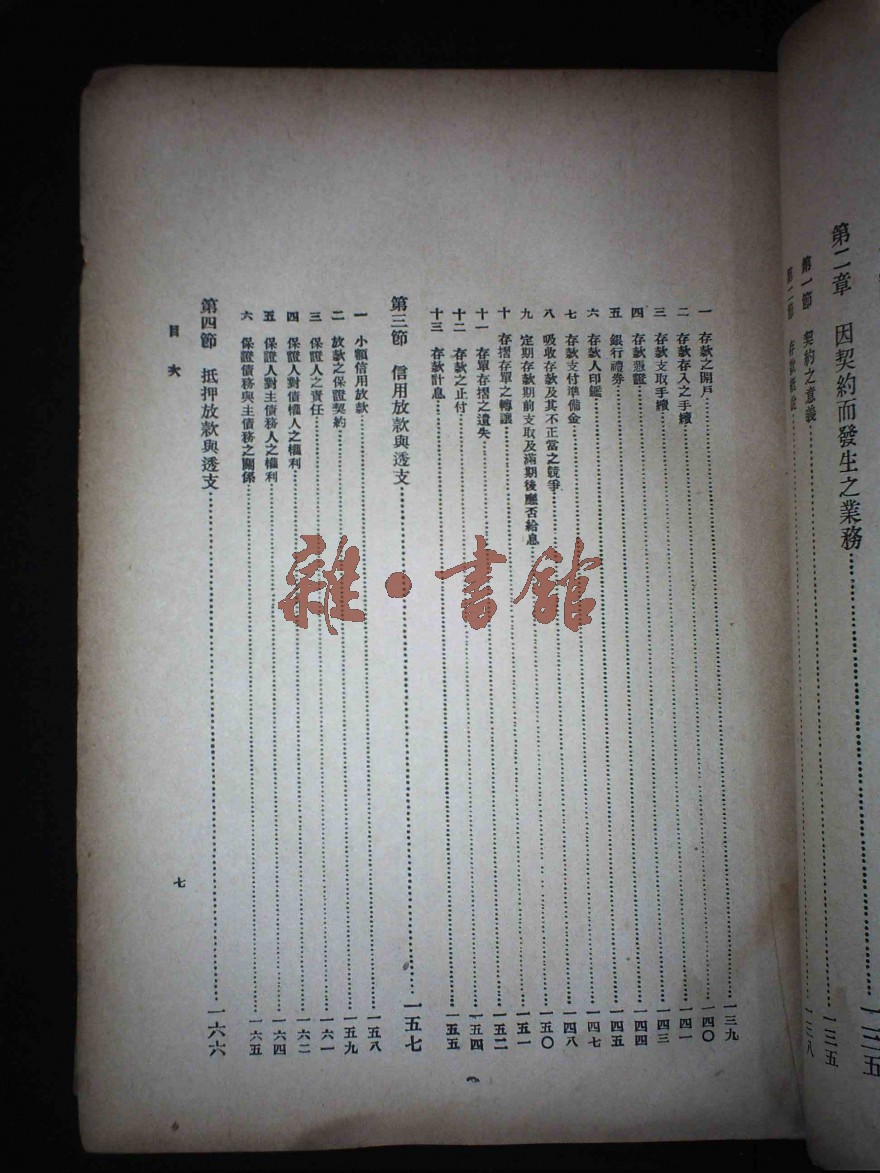 第二章 因契約而發生之業務……一三五
第一節 契約之意義……一三五
第二節 存款概說……一三八
一 存款之開戶……一三九
二 存款存入之手續……一四〇
三 存款支取手續……一四一
四 存款憑證……一四三
五 銀行禮券……一四四
六 存款人印鑑……一四五
七 存款支付準備金……一四七
八 吸收存款及其不正當之競爭……一四八
九 定期存款期前支取及滿期後應否給息……一五〇
十 存摺存單之轉讓……一五一
十一 存單存摺之遺失……一五二
十二 存款之止付……一五四
十三 存款計息……一五五
第三節 信用放款與透支……一五七
一 小額信用放款……一五八
二 放款之保證契約……一五九
三 保證人之責任……一六一
四 保證人對債權人之權利……一六二
五 保證人對主債務人之權利……一六四
六 保證債務與主債務之關係……一六五
第四節 抵押放款與透支……一六六
目次
七
雜·書館